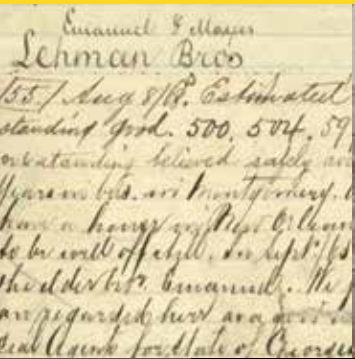 Emanuel & Mayer
Lehman Bros
155./ Aug 8/68. Estimated
standing good. 500, 504, 59
outstanding believed safely
Years in bus. in Montgomery.
have a house in New Orlean
to be well off still. in Sept/65
the elder bro. Emanuel. We
are regarded here as a good
deal Agents for State of Georgia